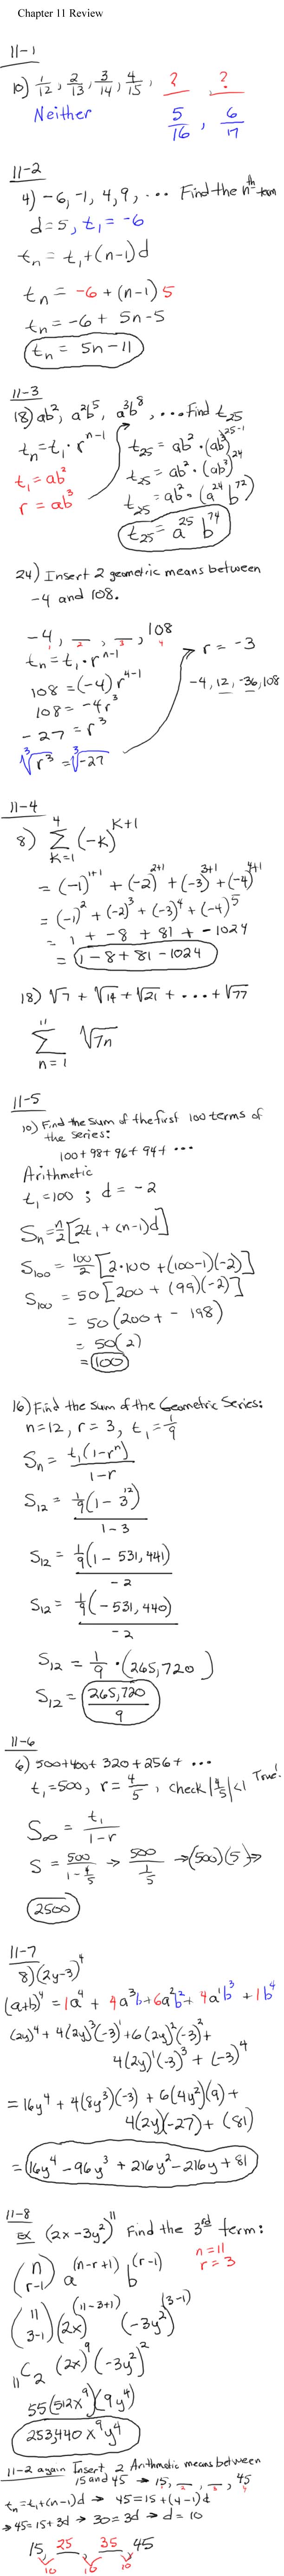 Chapter 11 Review
11-1
10) 1/12, 2/13, 3/14, 4/15, ?, ?
Neither 5/16, 6/17
11-2
4) -6, -1, 4, 9, ... Find the nth term
d=5, t₁ = -6
tₙ = t₁ + (n-1)d
tₙ = -6 + (n-1)5
tₙ = -6 + 5n - 5
tₙ = 5n - 11
11-3
18) ab², a²b⁵, a³b⁸, ... Find t₂₅
tₙ = t₁ · rⁿ⁻¹
t₁ = ab²
r = ab³
t₂₅ = ab² · (ab³)²⁵⁻¹
t₂₅ = ab² · (ab³)²⁴
t₂₅ = ab² · (a²⁴b⁷²)
t₂₅ = a²⁵b⁷⁴
24) Insert 2 geometric means between
-4 and 108.
-4, __, __, 108
1 2 3 4
tₙ = t₁ · rⁿ⁻¹
108 = (-4)r⁴⁻¹
108 = -4r³
-27 = r³
∛r³ = ∛-27
r = -3
-4, 12, -36, 108
11-4
8) Σ (k=1 to 4) (-k)^(k+1)
= (-1)¹⁺¹ + (-2)²⁺¹ + (-3)³⁺¹ + (-4)⁴⁺¹
= (-1)² + (-2)³ + (-3)⁴ + (-4)⁵
= 1 + -8 + 81 + -1024
= 1 - 8 + 81 - 1024
18) √7 + √14 + √21 + ... + √77
Σ (n=1 to 11) √7n
11-5
10) Find the sum of the first 100 terms of
the series:
100 + 98 + 96 + 94 + ...
Arithmetic
t₁ = 100 ; d = -2
Sₙ = n/2 [2t₁ + (n-1)d]
S₁₀₀ = 100/2 [2·100 + (100-1)(-2)]
S₁₀₀ = 50 [200 + (99)(-2)]
= 50 (200 + -198)
= 50(2)
= 100
16) Find the sum of the Geometric Series:
n=12, r=3, t₁ = 1/9
Sₙ = t₁(1-rⁿ) / 1-r
S₁₂ = 1/9(1 - 3¹²) / 1-3
S₁₂ = 1/9(1 - 531,441) / -2
S₁₂ = 1/9(-531,440) / -2
S₁₂ = 1/9 · (265,720)
S₁₂ = 265,720 / 9
11-6
6) 500 + 400 + 320 + 256 + ...
t₁ = 500, r = 4/5, check |4/5| < 1 True!
S∞ = t₁ / 1-r
S = 500 / 1-4/5 → 500 / 1/5 → (500)(5) →
2500
11-7
8) (2y-3)⁴
(a+b)⁴ = 1a⁴ + 4a³b + 6a²b² + 4a¹b³ + 1b⁴
(2y)⁴ + 4(2y)³(-3)¹ + 6(2y)²(-3)² +
4(2y)¹(-3)³ + (-3)⁴
= 16y⁴ + 4(8y³)(-3) + 6(4y²)(9) +
4(2y)(-27) + (81)
= 16y⁴ - 96y³ + 216y² - 216y + 81
11-8
EX (2x - 3y²)¹¹ Find the 3rd term:
n = 11
r = 3
(n r-1) a^(n-r+1) b^(r-1)
(11 3-1) (2x)^(11-3+1) (-3y²)^(3-1)
₁₁C₂ (2x)⁹ (-3y²)²
55 (512x⁹)(9y⁴)
253,440x⁹y⁴
11-2 again Insert 2 Arithmetic means between
15 and 45 → 15, __, __, 45
1 2 3 4
tₙ = t₁ + (n-1)d → 45 = 15 + (4-1)d
→ 45 = 15 + 3d → 30 = 3d → d = 10
15 25 35 45
10 10 10